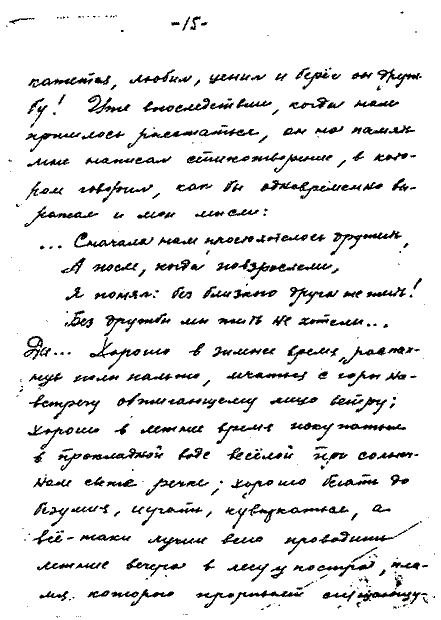 -15-
кажется, любил, ценил и берёг он друж-
бу! Уже впоследствии, когда нам
пришлось расстаться, он на память
мне написал стихотворение, в кото-
ром говорил, как бы одновременно вы-
ражая и мои мысли:
... Сначала нам просто хотелось дружить,
А после, когда повзрослели,
Я понял: без близкого друга не жить!
Без дружбы мы жить не хотели...
Да... Хорошо в зимнее время, распах-
нув полы пальто, мчаться с горы на-
встречу обжигающему лицо ветру;
хорошо в летнее время искупаться
в прохладной воде весёлой при солнеч-
ном свете речки; хорошо бегать до
безумия, играть, кувыркаться, а
всё-таки лучше всего проводить
летние вечера в лесу у костра, пла-
мя которого прорывает сгущающу-